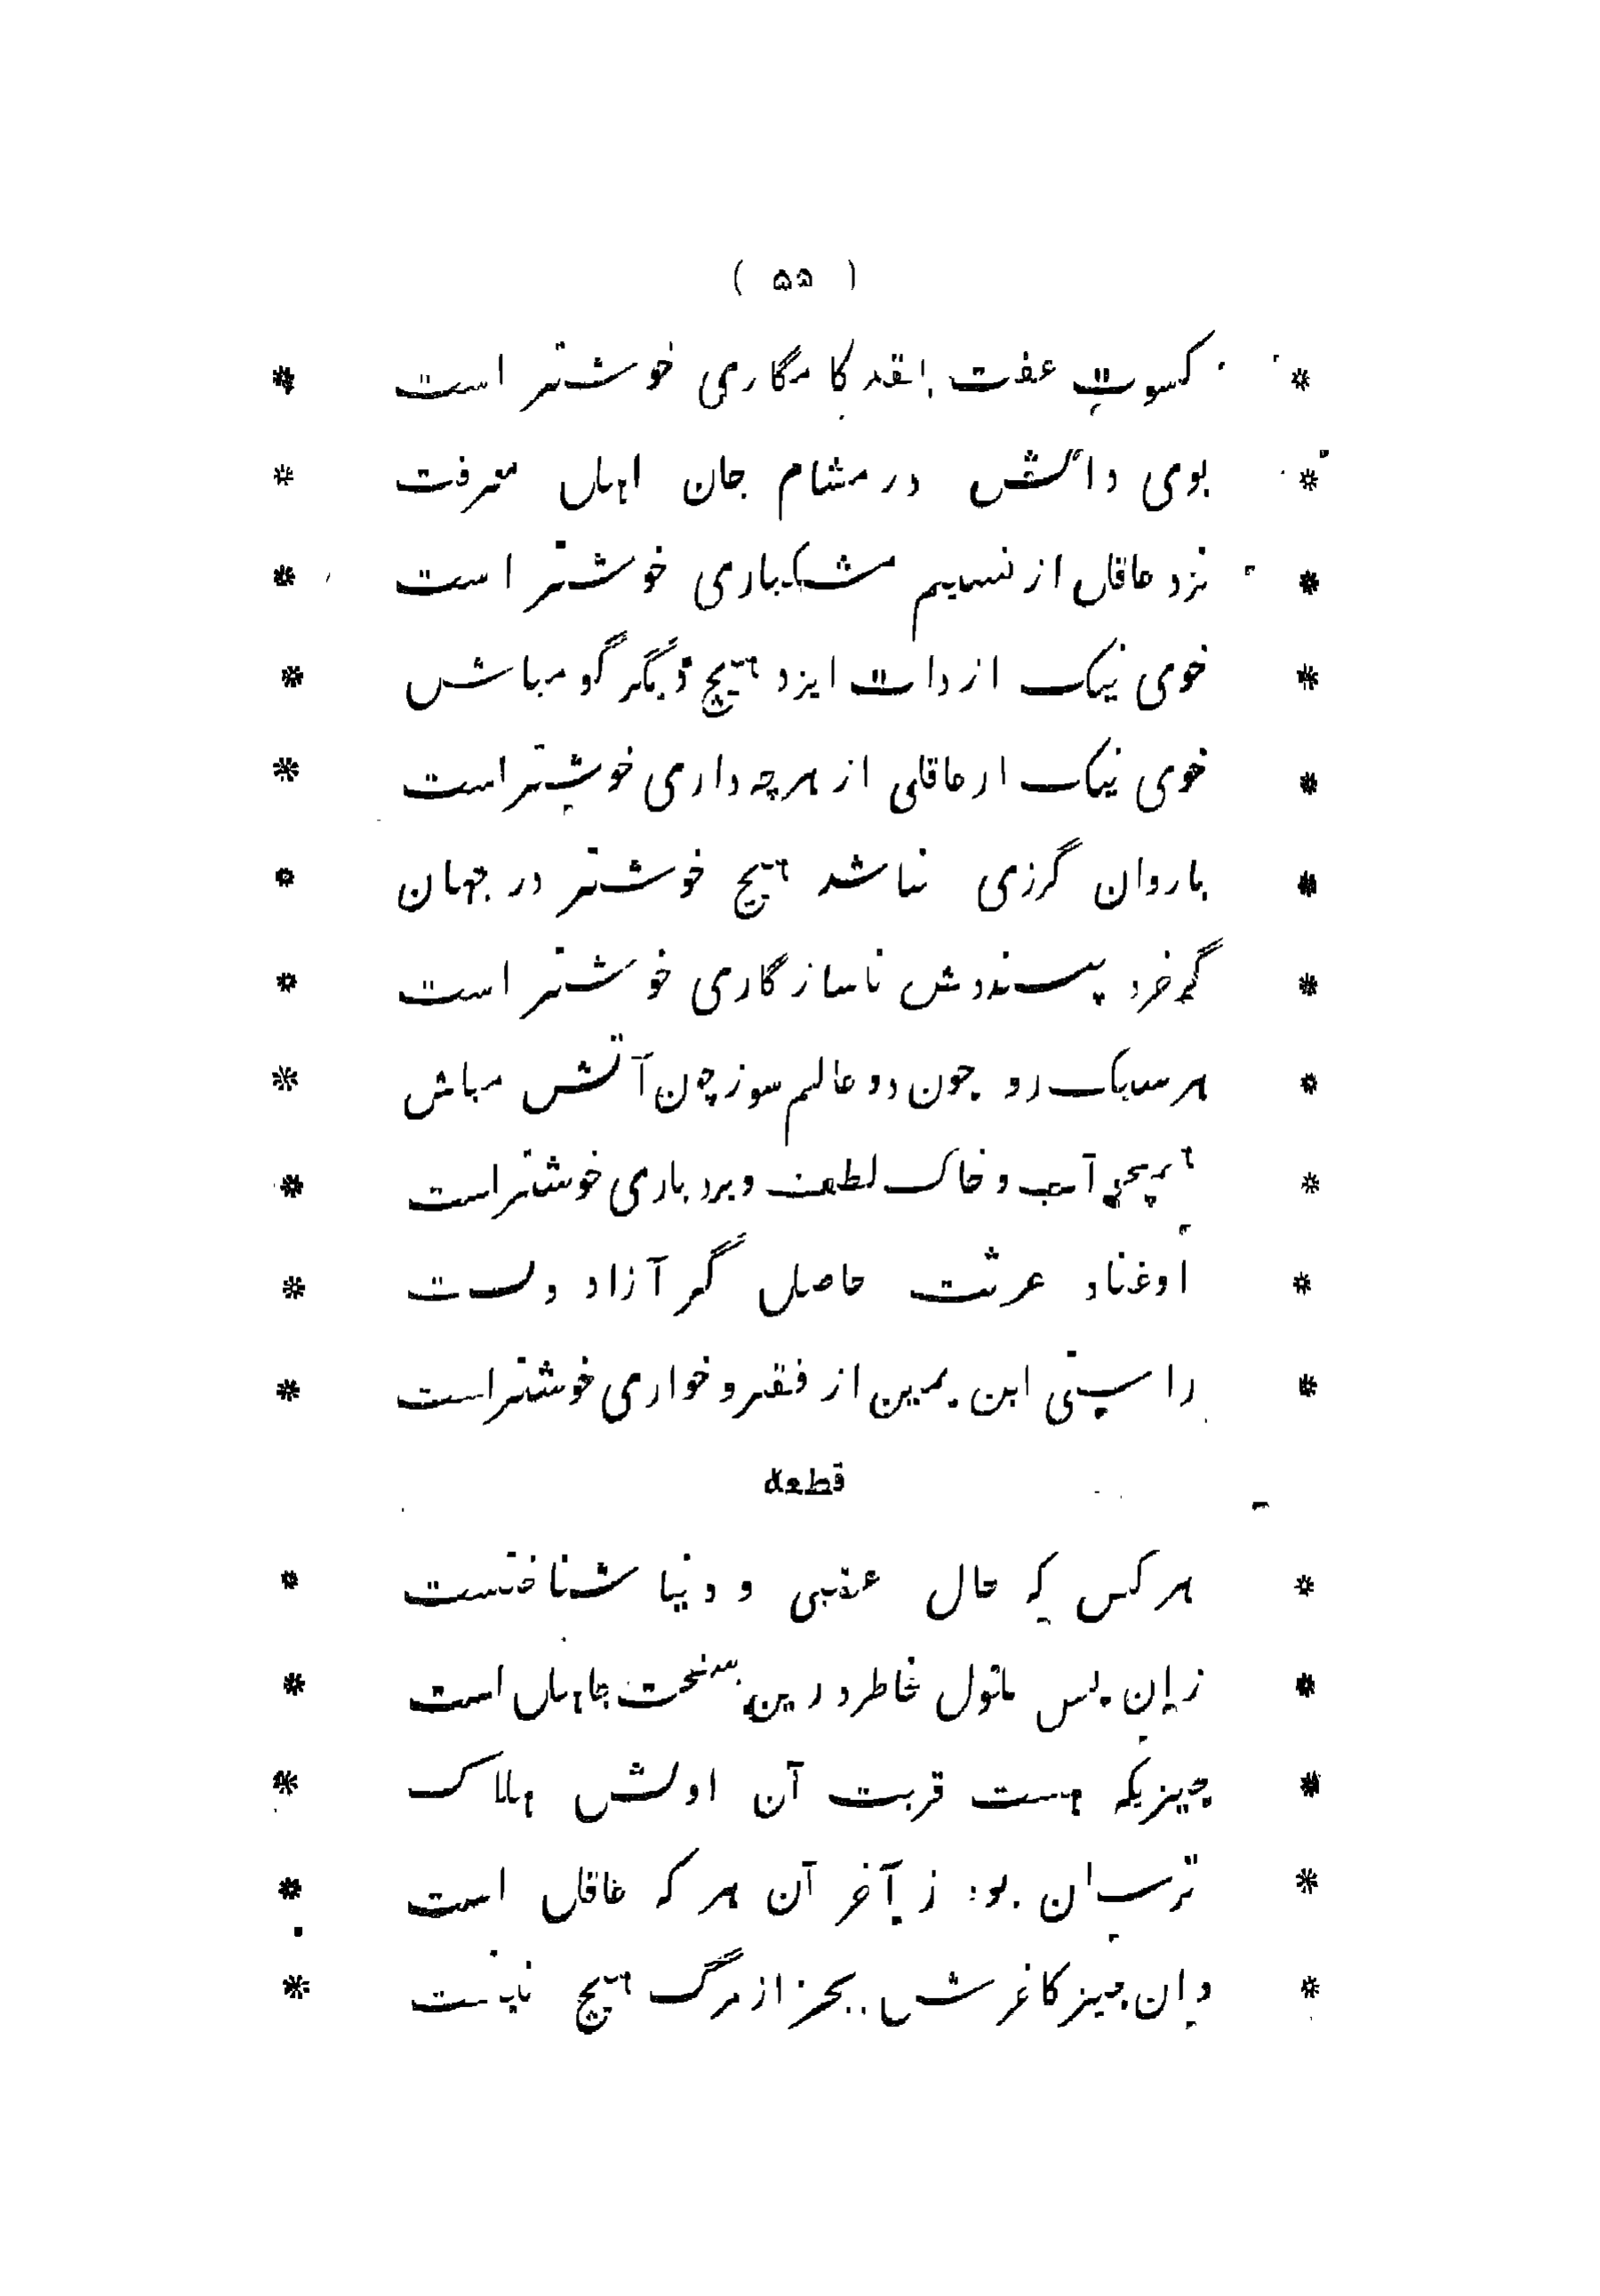 ( ۵۵ )
* کسوت عفت بنقد کامگاری خوشتر است *
* بوی دانش در مشام جان اهل معرفت *
* نزد عاقل از نسیم مشکباری خوشتر است *
* خوی نیک از ذات ایزد هیچ دیگر گو مباش *
* خوی نیک ار عاقلی از هرچه داری خوشتر است *
* باروان گرزی نباشد هیچ خوشتر در جهان *
* گر خرد پسنددش ناسازگاری خوشتر است *
* هر سبک رو چون دو عالم سوز چون آتش مباش *
* همچو آب و خاک لطف و بردباری خوشتر است *
* او غناد عزت حاصل گر آزاد دلست *
* راستی ابن یمین از فقر و خواری خوشتر است *
قطعه
* هر کس که حال عقبی و دنیا شناختست *
* زین پس ملول خاطر درین سخت جاهل است *
* چیزیکه هست قربت آن اولش هلاک *
* ترسان بود ز آخر آن هر که عاقل است *
* وان چیز کاخرش بجز از مرگ هیچ نیست *